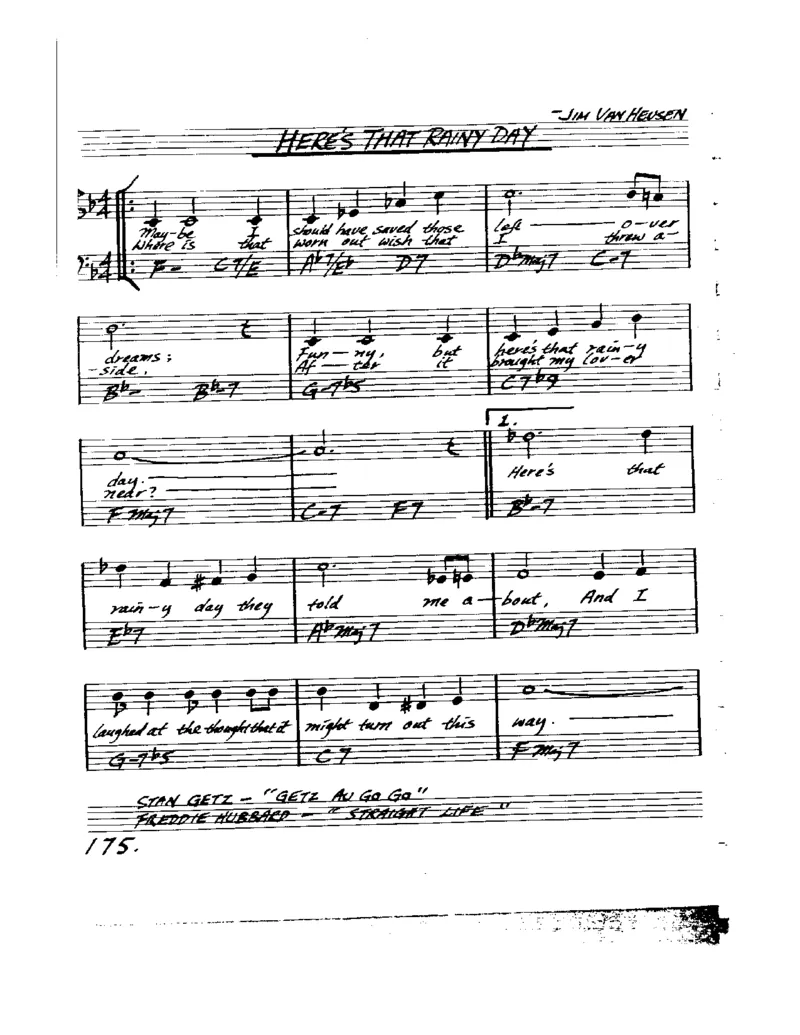 -JIM VAN HEUSEN
HERE'S THAT RAINY DAY
May-be I should have saved those left — o-ver
Where is that worn out wish that I threw a-
F- C7/E Ab7/Eb D7 DbMaj7 C-7
dreams; Fun-ny, but here's that rain-y
-side. Af-ter it brought my lov-er
Bb- Bb-7 G-7b5 C7b9
1.
day. Here's that
near?
F Maj7 C-7 F7 Bb-7
rain-y day they told me a-bout, And I
Eb7 AbMaj7 DbMaj7
laughed at the thought that it might turn out this way.
G-7b5 C7 F Maj7
STAN GETZ - "GETZ AU GO GO"
FREDDIE HUBBARD - "STRAIGHT LIFE"
175.